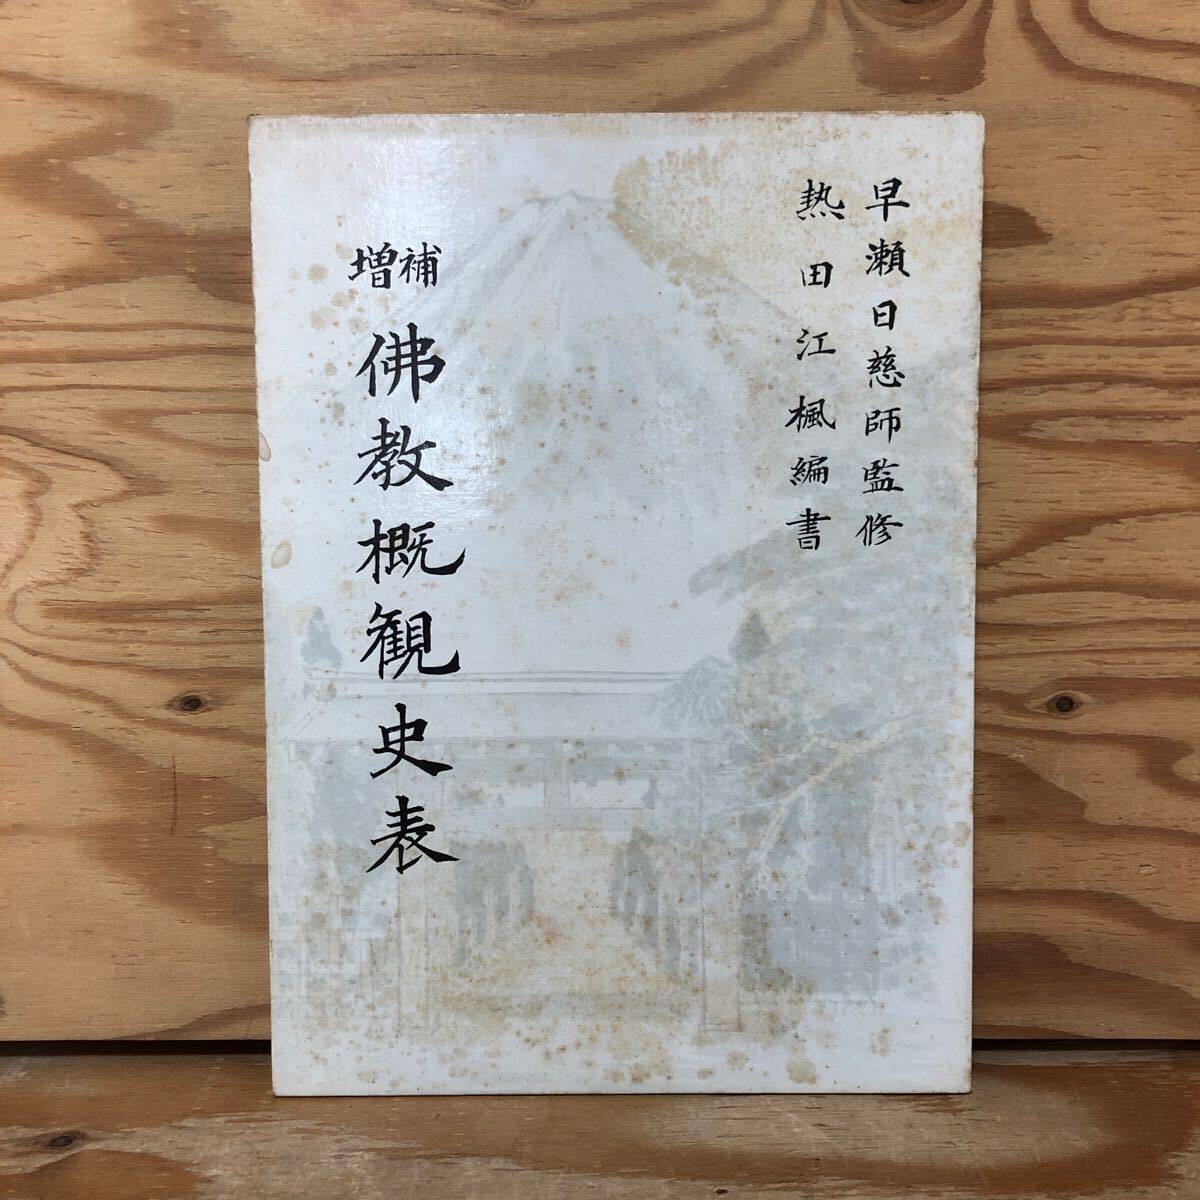 早瀬日慈師監修
熱田江楓編書
補増
佛教概観史表